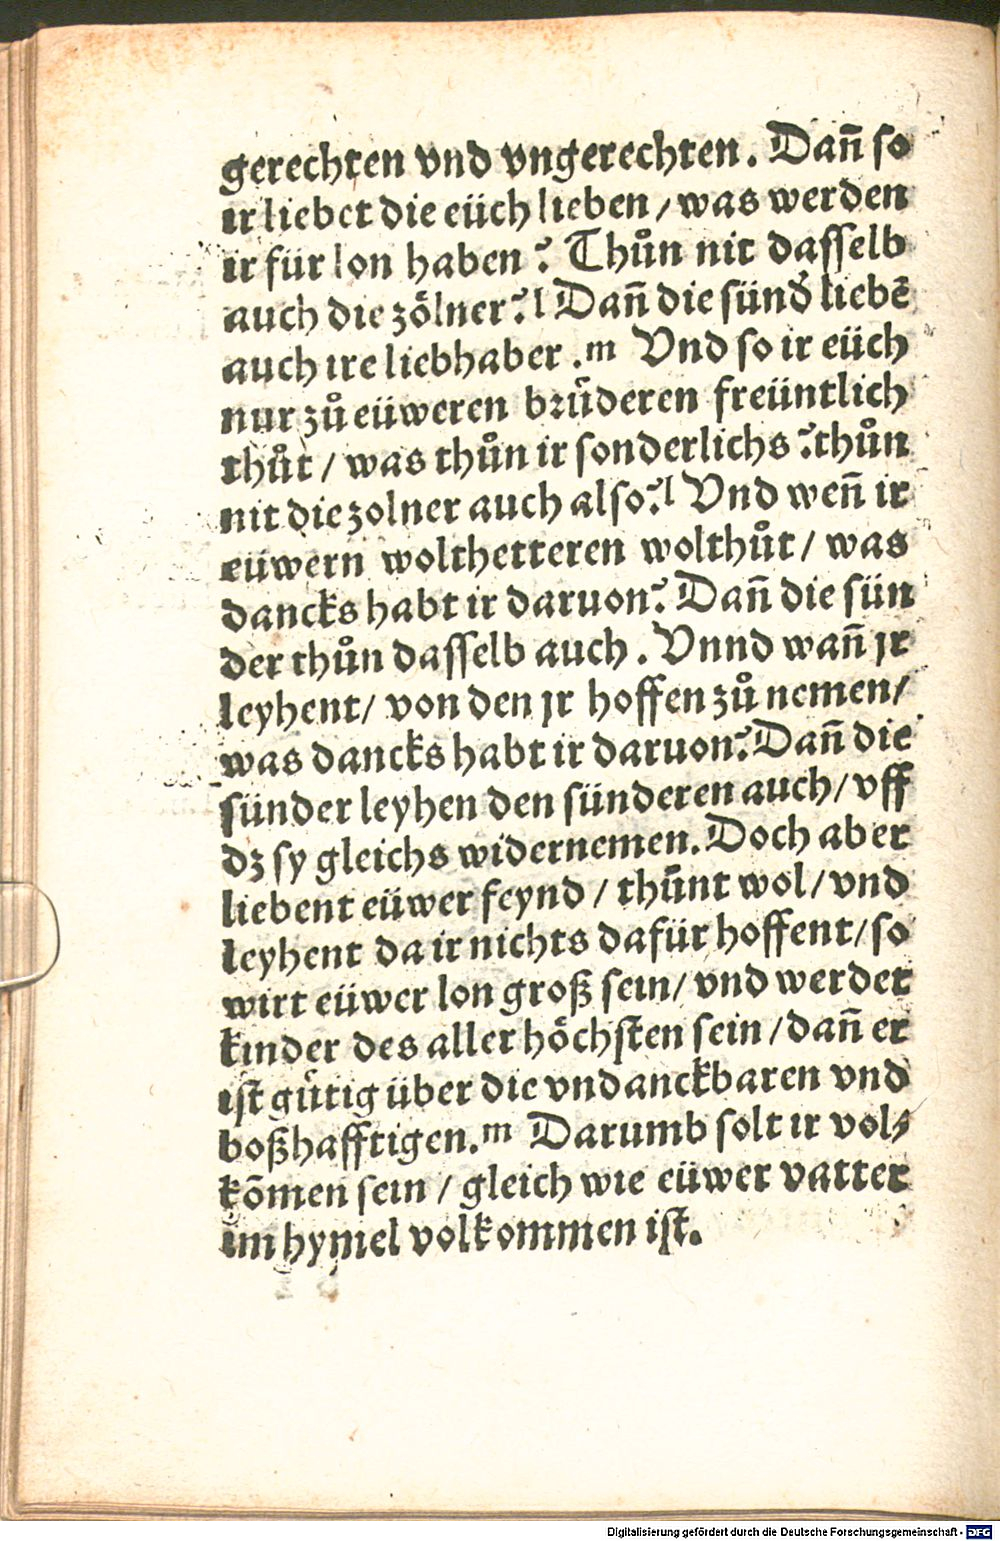 gerechten vnd vngerechten. Dañ so
ir liebet die eüch lieben / was werden
ir für lon haben? Thůn nit dasselb
auch die zoͤlner? l Dañ die sünď liebē
auch ire liebhaber .m Vnd so ir eüch
nur zů eüweren bruͤderen freüntlich
thůt / was thůn ir sonderlichs? thůn
nit die zolner auch also? l Vnd weñ ir
eüwern wolthetteren wolthůt / was
dancks habt ir daruon? Dañ die sün
der thůn dasselb auch. Vnnd wañ jr
leyhent / von den jr hoffen zů nemen /
was dancks habt ir daruon? Dañ die
sünder leyhen den sünderen auch / vff
dz sy gleichs widernemen. Doch aber
liebent eüwer feynd / thuͤnt wol / vnd
leyhent da ir nichts dafür hoffent / so
wirt eüwer lon groß sein / vnd werdet
kinder des aller hoͤchsten sein / dañ er
ist guͤtig über die vndanckbaren vnd
boßhafftigen.m Darumb solt ir vol⸗
kōmen sein / gleich wie eüwer vatter
im hymel volkommen ist.
Digitalisierung gefördert durch die Deutsche Forschungsgemeinschaft - DFG